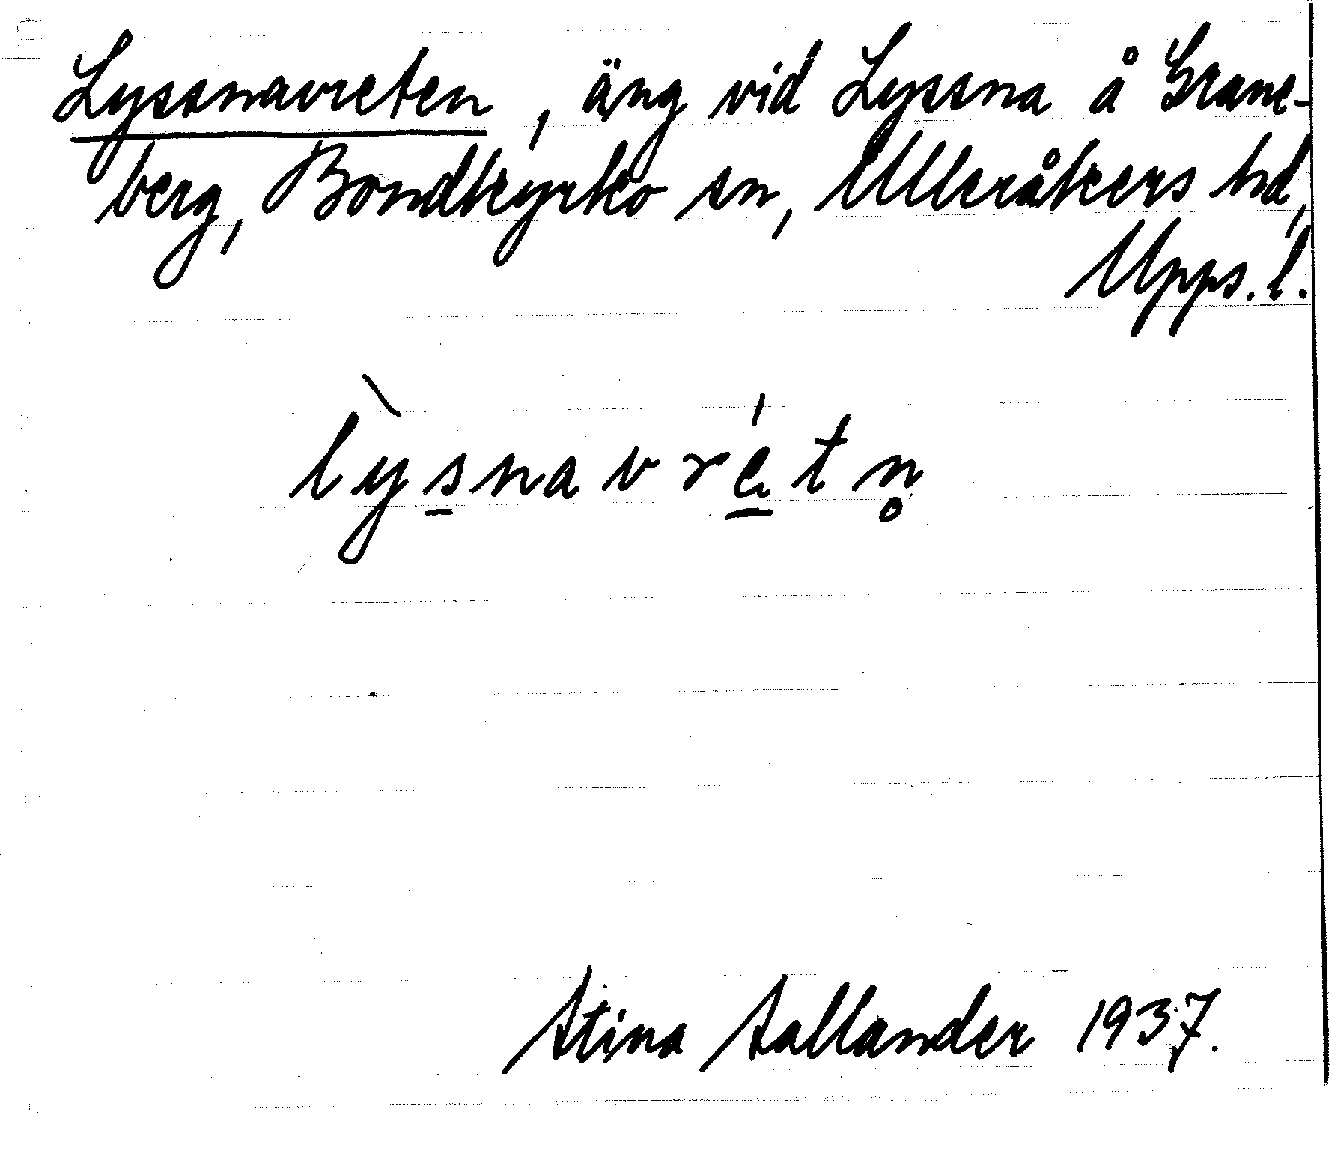 Lyssnavreten, äng vid Lyssna å Grane-
berg, Bondkyrko sn, Ulleråkers hd,
Upps. l.
lỳs̱navré̱tn̥
Stina Sallander 1937.